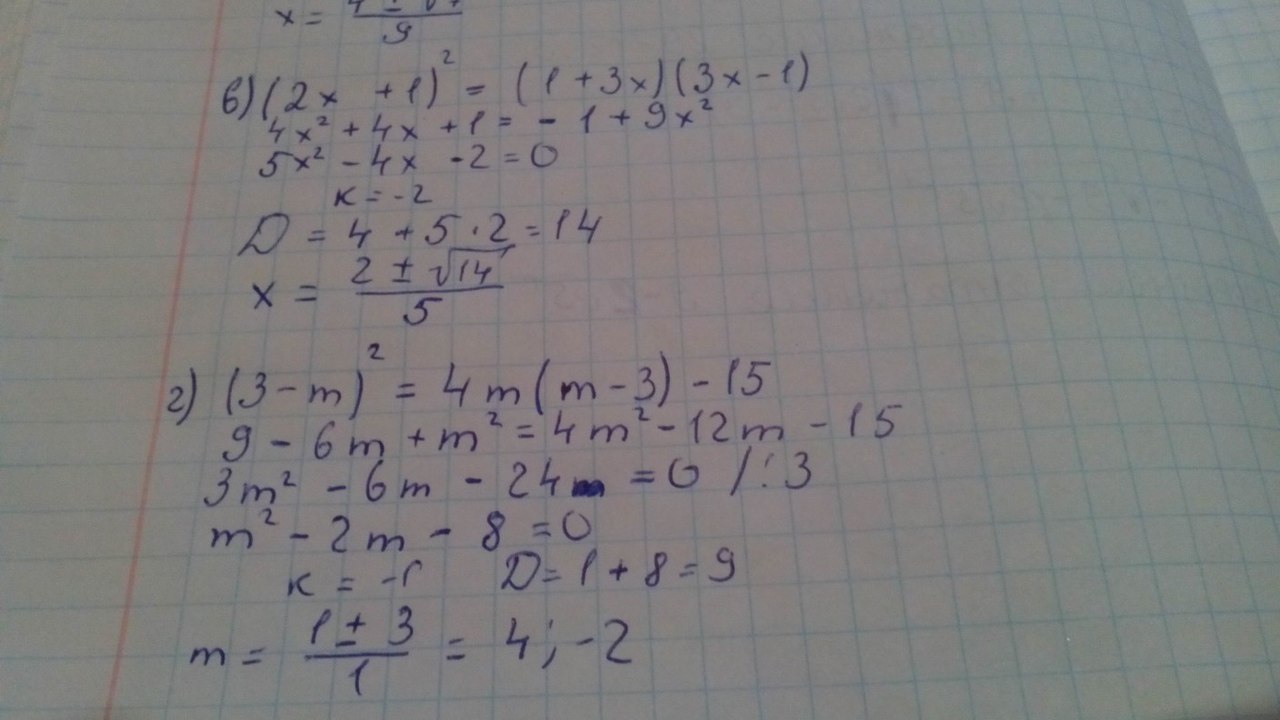 x = 4 ± √7 / 9
в) (2x + 1)² = (1 + 3x)(3x - 1)
4x² + 4x + 1 = - 1 + 9x²
5x² - 4x - 2 = 0
к = -2
D = 4 + 5 · 2 = 14
x = 2 ± √14 / 5
г) (3 - m)² = 4m(m - 3) - 15
9 - 6m + m² = 4m² - 12m - 15
3m² - 6m - 24 = 0 /:3
m² - 2m - 8 = 0
к = -1 D = 1 + 8 = 9
m = 1 ± 3 / 1 = 4; -2